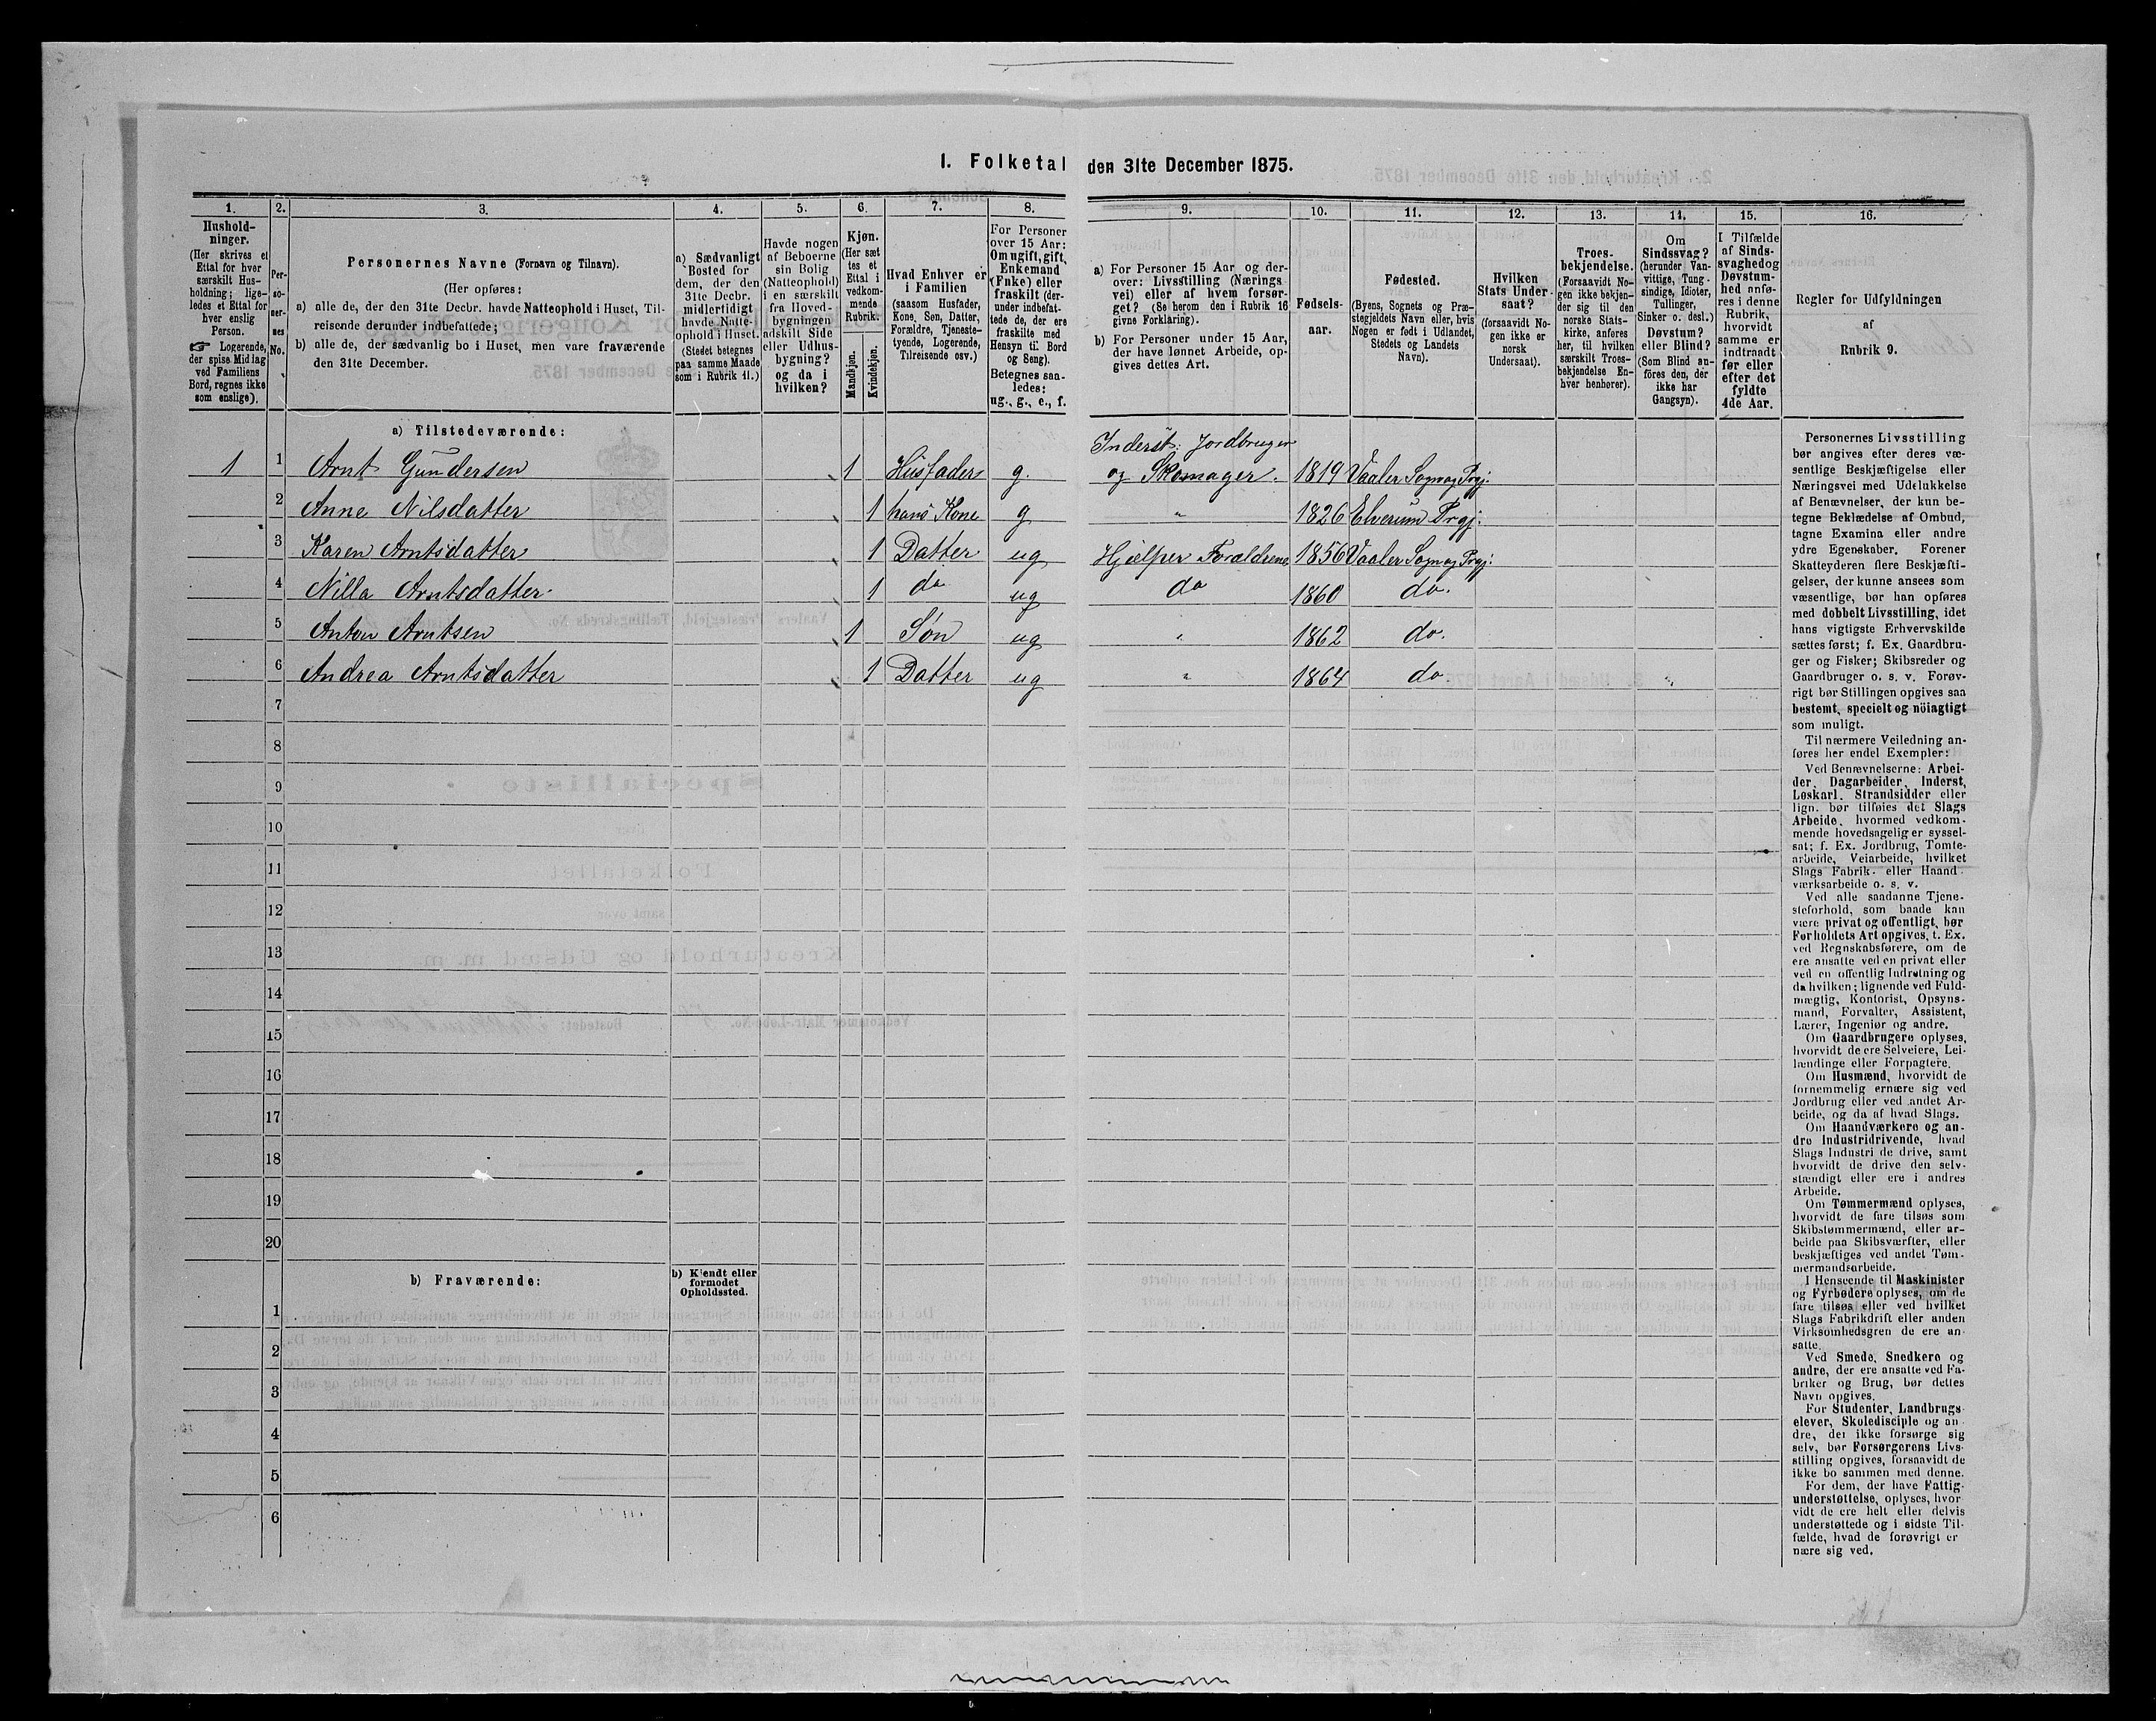 1. Folketal den 31te December 1875.
1. 2. 3. 4. 5. 6. 7. 8. 9. 10. 11. 12. 13. 14. 15. 16.
Hushold-
ninger.
(Her skrives et
Ettal for hver
særskilt Hus-
holdning; lige-
ledes et Ettal for
hver enslig
Person.
☞ Logerende,
der spise Middag
ved Familiens
Bord, regnes ikke
som enslige).
Per-
so-
ner-
nes
No.
Personernes Navne (Fornavn og Tilnavn).
(Her opføres:
a) alle de, der den 31te Decbr. havde Natteophold i Huset, Til-
reisende derunder indbefattede;
b) alle de, der sædvanlig bo i Huset, men vare fraværende
den 31te December.
a) Sædvanligt
Bosted for
dem, der den
31te Decbr.
midlertidigt
havde Natte-
ophold i Huset.
(Stedet betegnes
paa samme Maade
som i Rubrik 11.)
Havde nogen
af Beboerne
sin Bolig
(Natteophold)
i en særskilt
fra Hoved-
bygningen
adskilt Side
eller Udhus-
bygning?
og da i
hvilken?
Kjøn.
(Her sæt
tes et
Ettal i
vedkom-
mende
Rubrik.
Mandkjøn.
Kvindekjøn.
Hvad Enhver er
i Familien
(saasom Husfader,
Kone, Søn, Datter,
Forældre, Tjeneste-
tyende, Logerende,
Tilreisende osv.)
For Personer
over 15 Aar:
Om ugift, gift,
Enkemand
(Enke) eller
fraskilt (der-
under indbefat-
tede de, der ere
fraskilte med
Hensyn til Bord
og Seng).
Betegnes saa-
ledes:
ug., g., e., f.
a) For Personer 15 Aar og der-
over: Livsstilling (Nærings-
vei) eller af hvem forsør-
get? (Se herom den i Rubrik 16
givne Forklaring).
b) For Personer under 15 Aar,
der have lønnet Arbeide, op-
gives dettes Art.
Fødsels-
aar.
Fødested.
(Byens, Sognets og Præ-
stegjeldets Navn eller, hvis
Nogen er født i Udlandet,
Stedets og Landets
Navn).
Hvilken
Stats Under-
saat?
(forsaavidt No-
gen ikke er
norsk
Undersaat).
Troes-
bekjendelse.
(Forsaavidt No-
gen ikke bekjen-
der sig til den
norske Stats-
kirke, anføres
her, til hvilken
særskilt Troes-
bekjendelse En-
hver henhører).
Om
Sindssvag?
(herunder Van-
vittige, Tung-
sindige, Idioter,
Tullinger,
Sinker o. desl.)
Døvstum?
eller Blind?
(Som Blind an-
føres den, der
ikke har
Gangsyn).
I Tilfælde
af Sinds-
svaghed og
Døvstum-
hed anfø-
res i denne
Rubrik,
hvorvidt
samme er
indtraadt
før eller
efter det
fyldte
4de Aar.
Regler for Udfyldningen
af
Rubrik 9.
a) Tilstedeværende:
Inderst. Jordbruger
1 1 Arnt Gundersen 1 Husfader g. og Skomager. 1819 Vaaler Sogn og Prgj.
2 Anne Nilsdatter 1 hans Kone g " 1826 Elverum Prgj.
3 Karen Arntsdatter 1 Datter ug Hjælper Forældrene 1856 Vaaler Sogn og Prgj.
4 Nilla Arntsdatter 1 do ug do 1860 do.
5 Anton Arntsen 1 Søn ug " 1862 do.
6 Andrea Arntsdatter 1 Datter ug " 1864 do
7
8
9
10
11
12
13
14
15
16
17
18
19
20
b) Fraværende:
b) Kjendt eller
formodet
Opholdssted.
1
2
3
4
5
6
Personernes Livsstilling
bør angives efter deres væ-
sentlige Beskjæftigelse eller
Næringsvei med Udelukkelse
af Benævnelser, der kun be-
tegne Beklædelse af Ombud,
tagne Examina eller andre
ydre Egenskaber. Forener
Skatteyderen flere Beskjæfti-
gelser, der kunne ansees som
væsentlige, bør han opføres
med dobbelt Livsstilling, idet
hans vigtigste Erhvervskilde
sættes først; f. Ex. Gaardbru-
ger og Fisker; Skibsreder og
Gaardbruger o. s. v. Forøv-
rigt bør Stillingen opgives saa
bestemt, specielt og nöiagtigt
som muligt.
Til nærmere Veiledning an-
føres her endel Exempler:
Ved Benævnelserne: Arbei-
der, Dagarbeider, Inderst,
Løskarl, Strandsidder eller
lign. bør tilføies det Slags
Arbeide, hvormed vedkom-
mende hovedsagelig er syssel-
sat; f. Ex. Jordbrug, Tomte-
arbeide, Veiarbeide, hvilket
Slags Fabrik- eller Haand-
værksarbeide o. s. v.
Ved alle saadanne Tjene-
steforhold, som baade kan
være privat og offentligt, bør
Forholdets Art opgives, t. Ex.
ved Regnskabsførere, om de
ere ansatte ved en privat eller
ved en offentlig Indretning og
da hvilken; lignende ved Fuld-
mægtig, Kontorist, Opsyns-
mand, Forvalter, Assistent,
Lærer, Ingeniør og andre.
Om Gaardbrugere oplyses,
hvorvidt de ere Selveiere, Lei-
lændinge eller Forpagtere.
Om Husmænd, hvorvidt de
fornemmelig ernære sig ved
Jordbrug eller ved andet Ar-
beide, og da af hvad Slags.
Om Haandværkere og an-
dre Industridrivende, hvad
Slags Industri de drive, samt
hvorvidt de drive den selv-
stændigt eller ere i andres
Arbeide.
Om Tømmermænd oplyses,
hvorvidt de fare tilsøs som
Skibstømmermænd, eller ar-
beide paa Skibsværfter, eller
beskjæftiges ved andet Tøm-
mermandsarbeide.
I Henseende til Maskinister
og Fyrbødere oplyses, om de
fare tilsøs eller ved hvilket
Slags Fabrikdrift eller anden
Virksomhedsgren de ere an-
satte.
Ved Smede, Snedkere og
andre, der ere ansatte ved Fa-
briker og Brug, bør dettes
Navn opgives.
For Studenter, Landbrugs-
elever, Skoledisciple og an-
dre, der ikke forsørge sig
selv, bør Forsørgerens Livs-
stilling opgives, forsaavidt de
ikke bo sammen med denne.
For dem, der have Fattig-
understøttelse, oplyses, hvor-
vidt de ere helt eller delvis
understøttede og i sidste Til-
fælde, hvad de forøvrigt er-
nære sig ved.